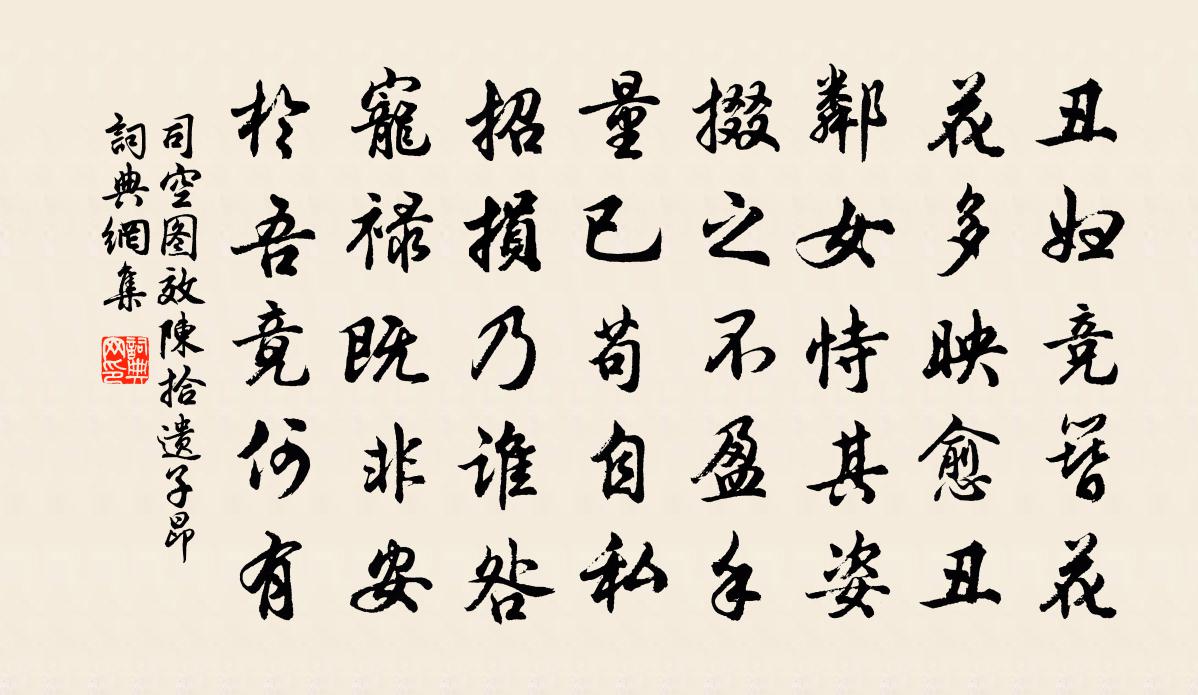 丑妇竞簪花
花多映愈丑
鄰女恃其姿
掇之不盈手
量已苟自私
招損乃誰咎
寵禄既非安
於吾竟何有
司空图效陳拾遗子昂
詞典網集
詞典网印